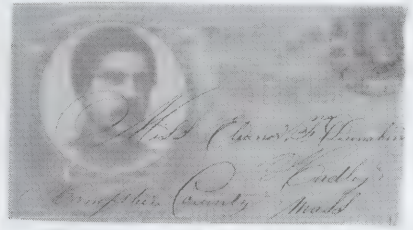 Miss Eleanor F.
Hadley
Hampshire County Mass